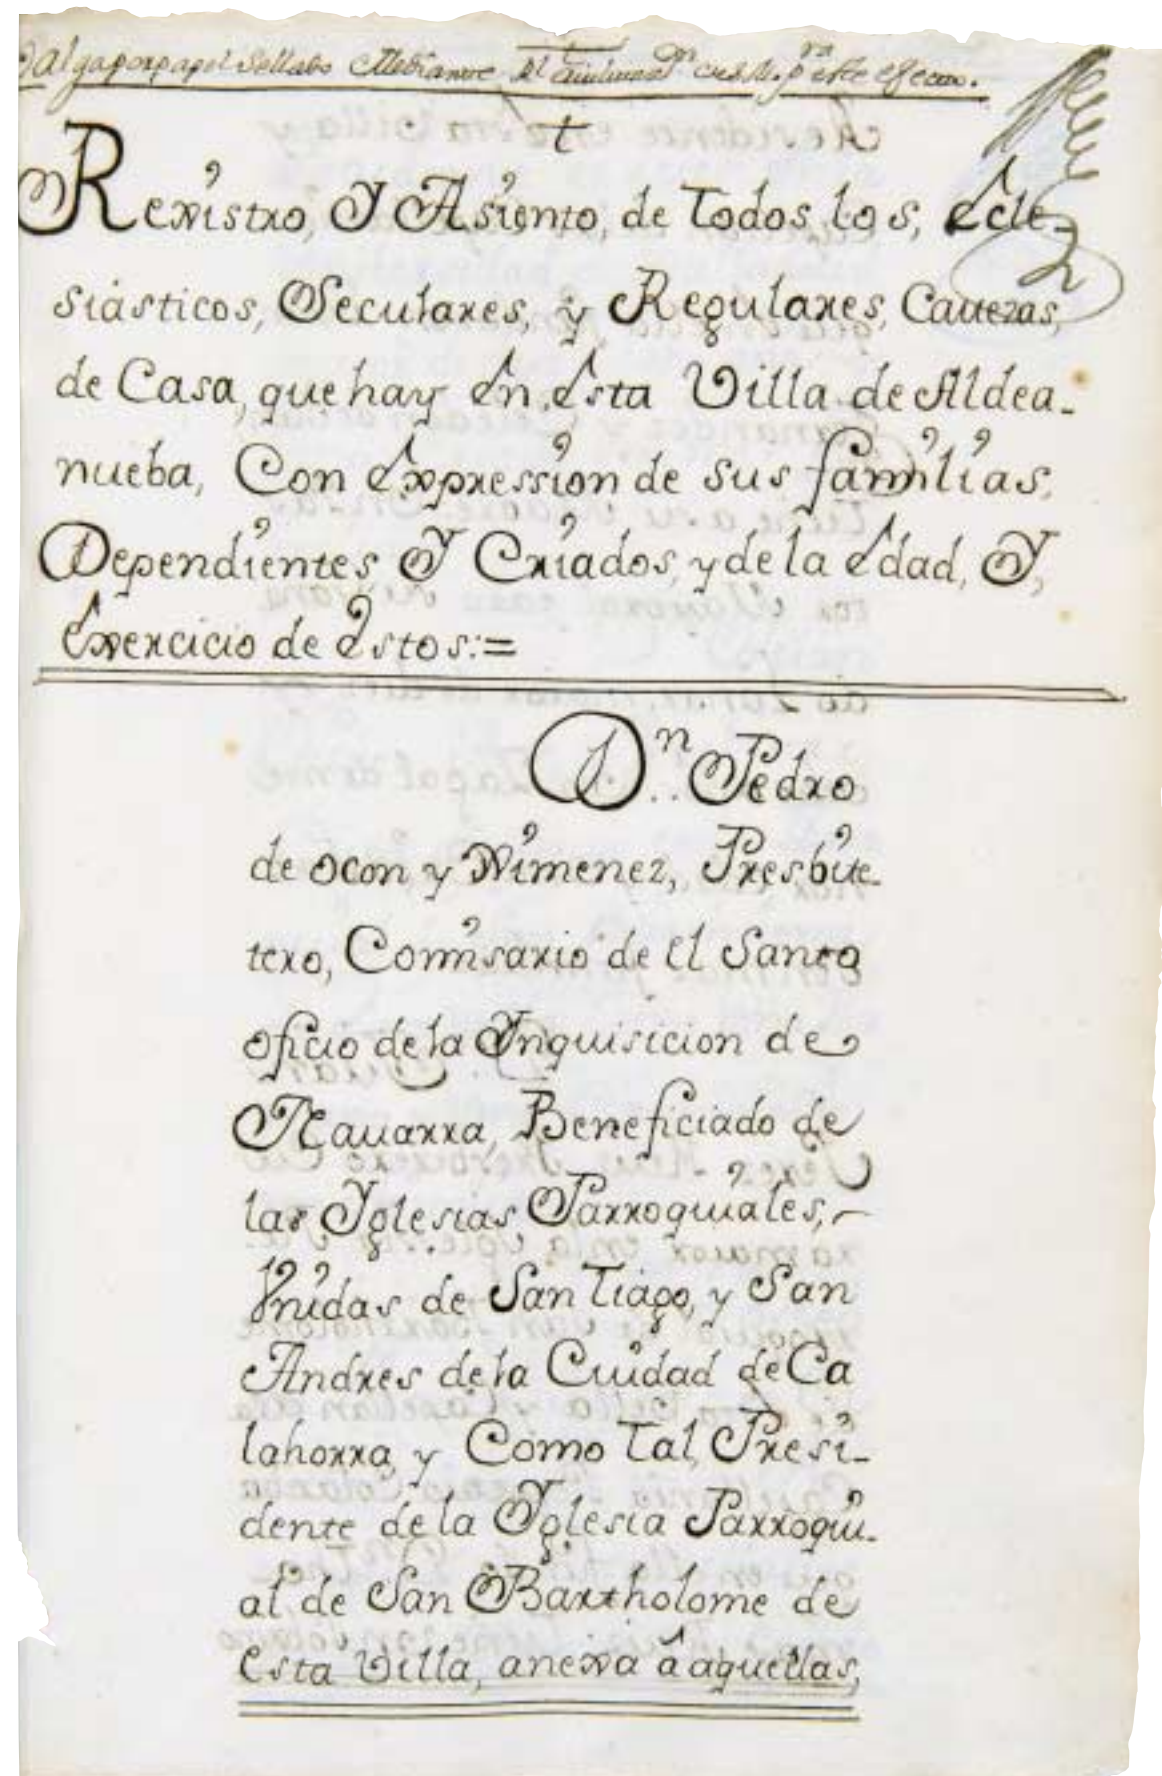 Valga por papel Sellado Mediante el
t
Rexistro, Y Asiento, de Todos los, Ecle-
siásticos, Seculares, y Regulares, Cauezas,
de Casa, que hay En Esta Villa de Aldea-
nueba, Con Expression de sus familias,
Dependientes, Y Criados, y de la Edad, Y,
Exercicio de Estos:=
Dn Pedro
de Ocon y Ximenez, Presbite-
tero, Comisario de el Santo
oficio de la Ynquisicion de
Nauarra, Beneficiado de
las Yglesias, Parroquiales,
Vnidas de San Tiago, y San
Andres de la Ciudad de Ca
lahorra, y Como Tal, Presi-
dente de la Yglesia Parroqui-
al de San Bartholome de
esta Villa, anexa â aquellas,